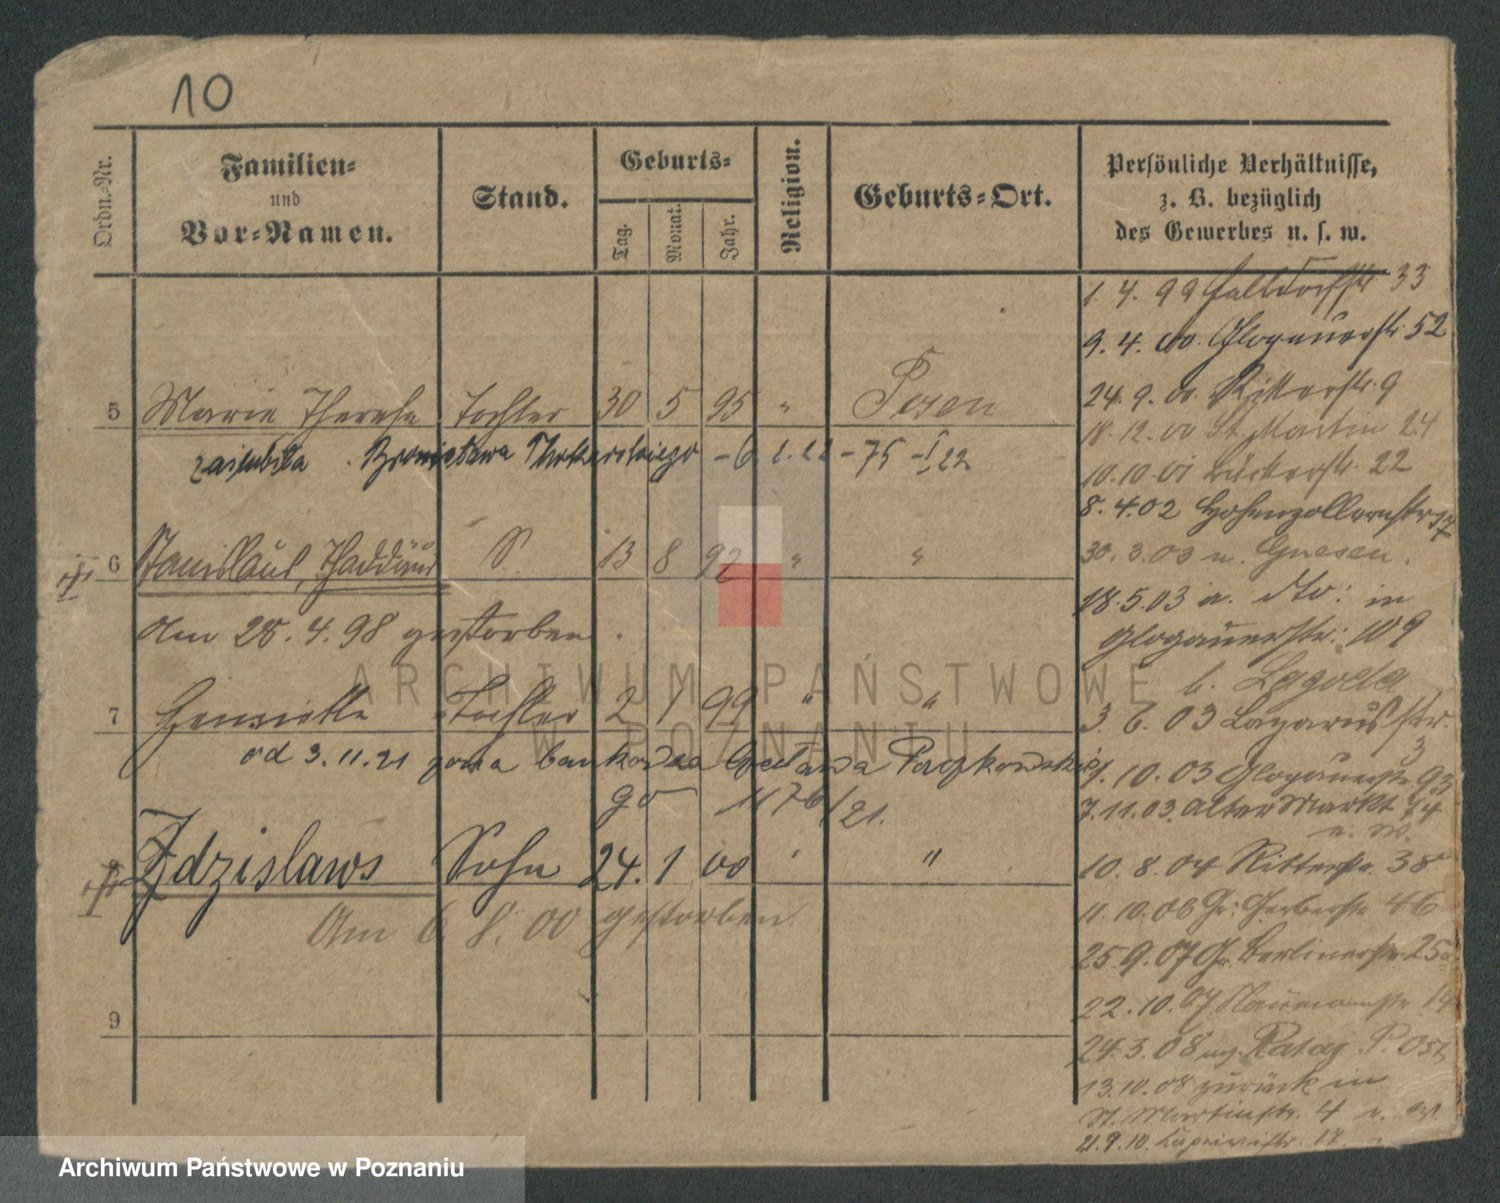 10
Ordn.-Nr.
Familien-
und
Vor-Namen.
Stand.
Geburts-
Tag.
Monat.
Jahr.
Religion.
Geburts-Ort.
Persönliche Verhältnisse,
z. B. bezüglich
des Gewerbes u. s. w.
1. 4. 99 33
9. 4. 00. Glogauerstr 52
24. 9. 00. Ritterstr. 9
18. 12. 00 St. Martin 24
10. 10. 01 22
8. 4. 02 Hohenzollernstr
30. 3. 03 n. Gnesen.
18. 5. 03 dto: in
Glogauerstr: 109
b.
3. 6. 03 Lazarusstr.
3
1. 10. 03 Glogauerstr 93
7. 11. 03. Alter Markt
10. 8. 04 Ritterstr. 38
11. 10. 06 Gr: Gerberstr 46
25. 9. 07 Gr. Berlinerstr 25a
22. 10. 07 Naumannstr 14
24. 3. 08 Rataj P. Ost
13. 10. 08 zurück in
St. Martinstr. 4
21. 9. 10.
5 Marie Therese Tochter 30 5 95 " Posen
zaślubiła Bronisława - 6. 1. 22 - 75 - I, 22
6 Stanislaus, Thaddäus S. 13 8 92 " "
Am 28. 4. 98 gestorben.
7 Henriette Tochter 2 1 99 " "
od 3. 11. 21 żona bankowca Gustawa Paczkowskie
go 1176/21.
Zdzislaws Sohn 24. 1 00 " "
Am 6. 8. 00 gestorben.
9
ARCHIWUM PAŃSTWOWE
W POZNANIU
Archiwum Państwowe w Poznaniu